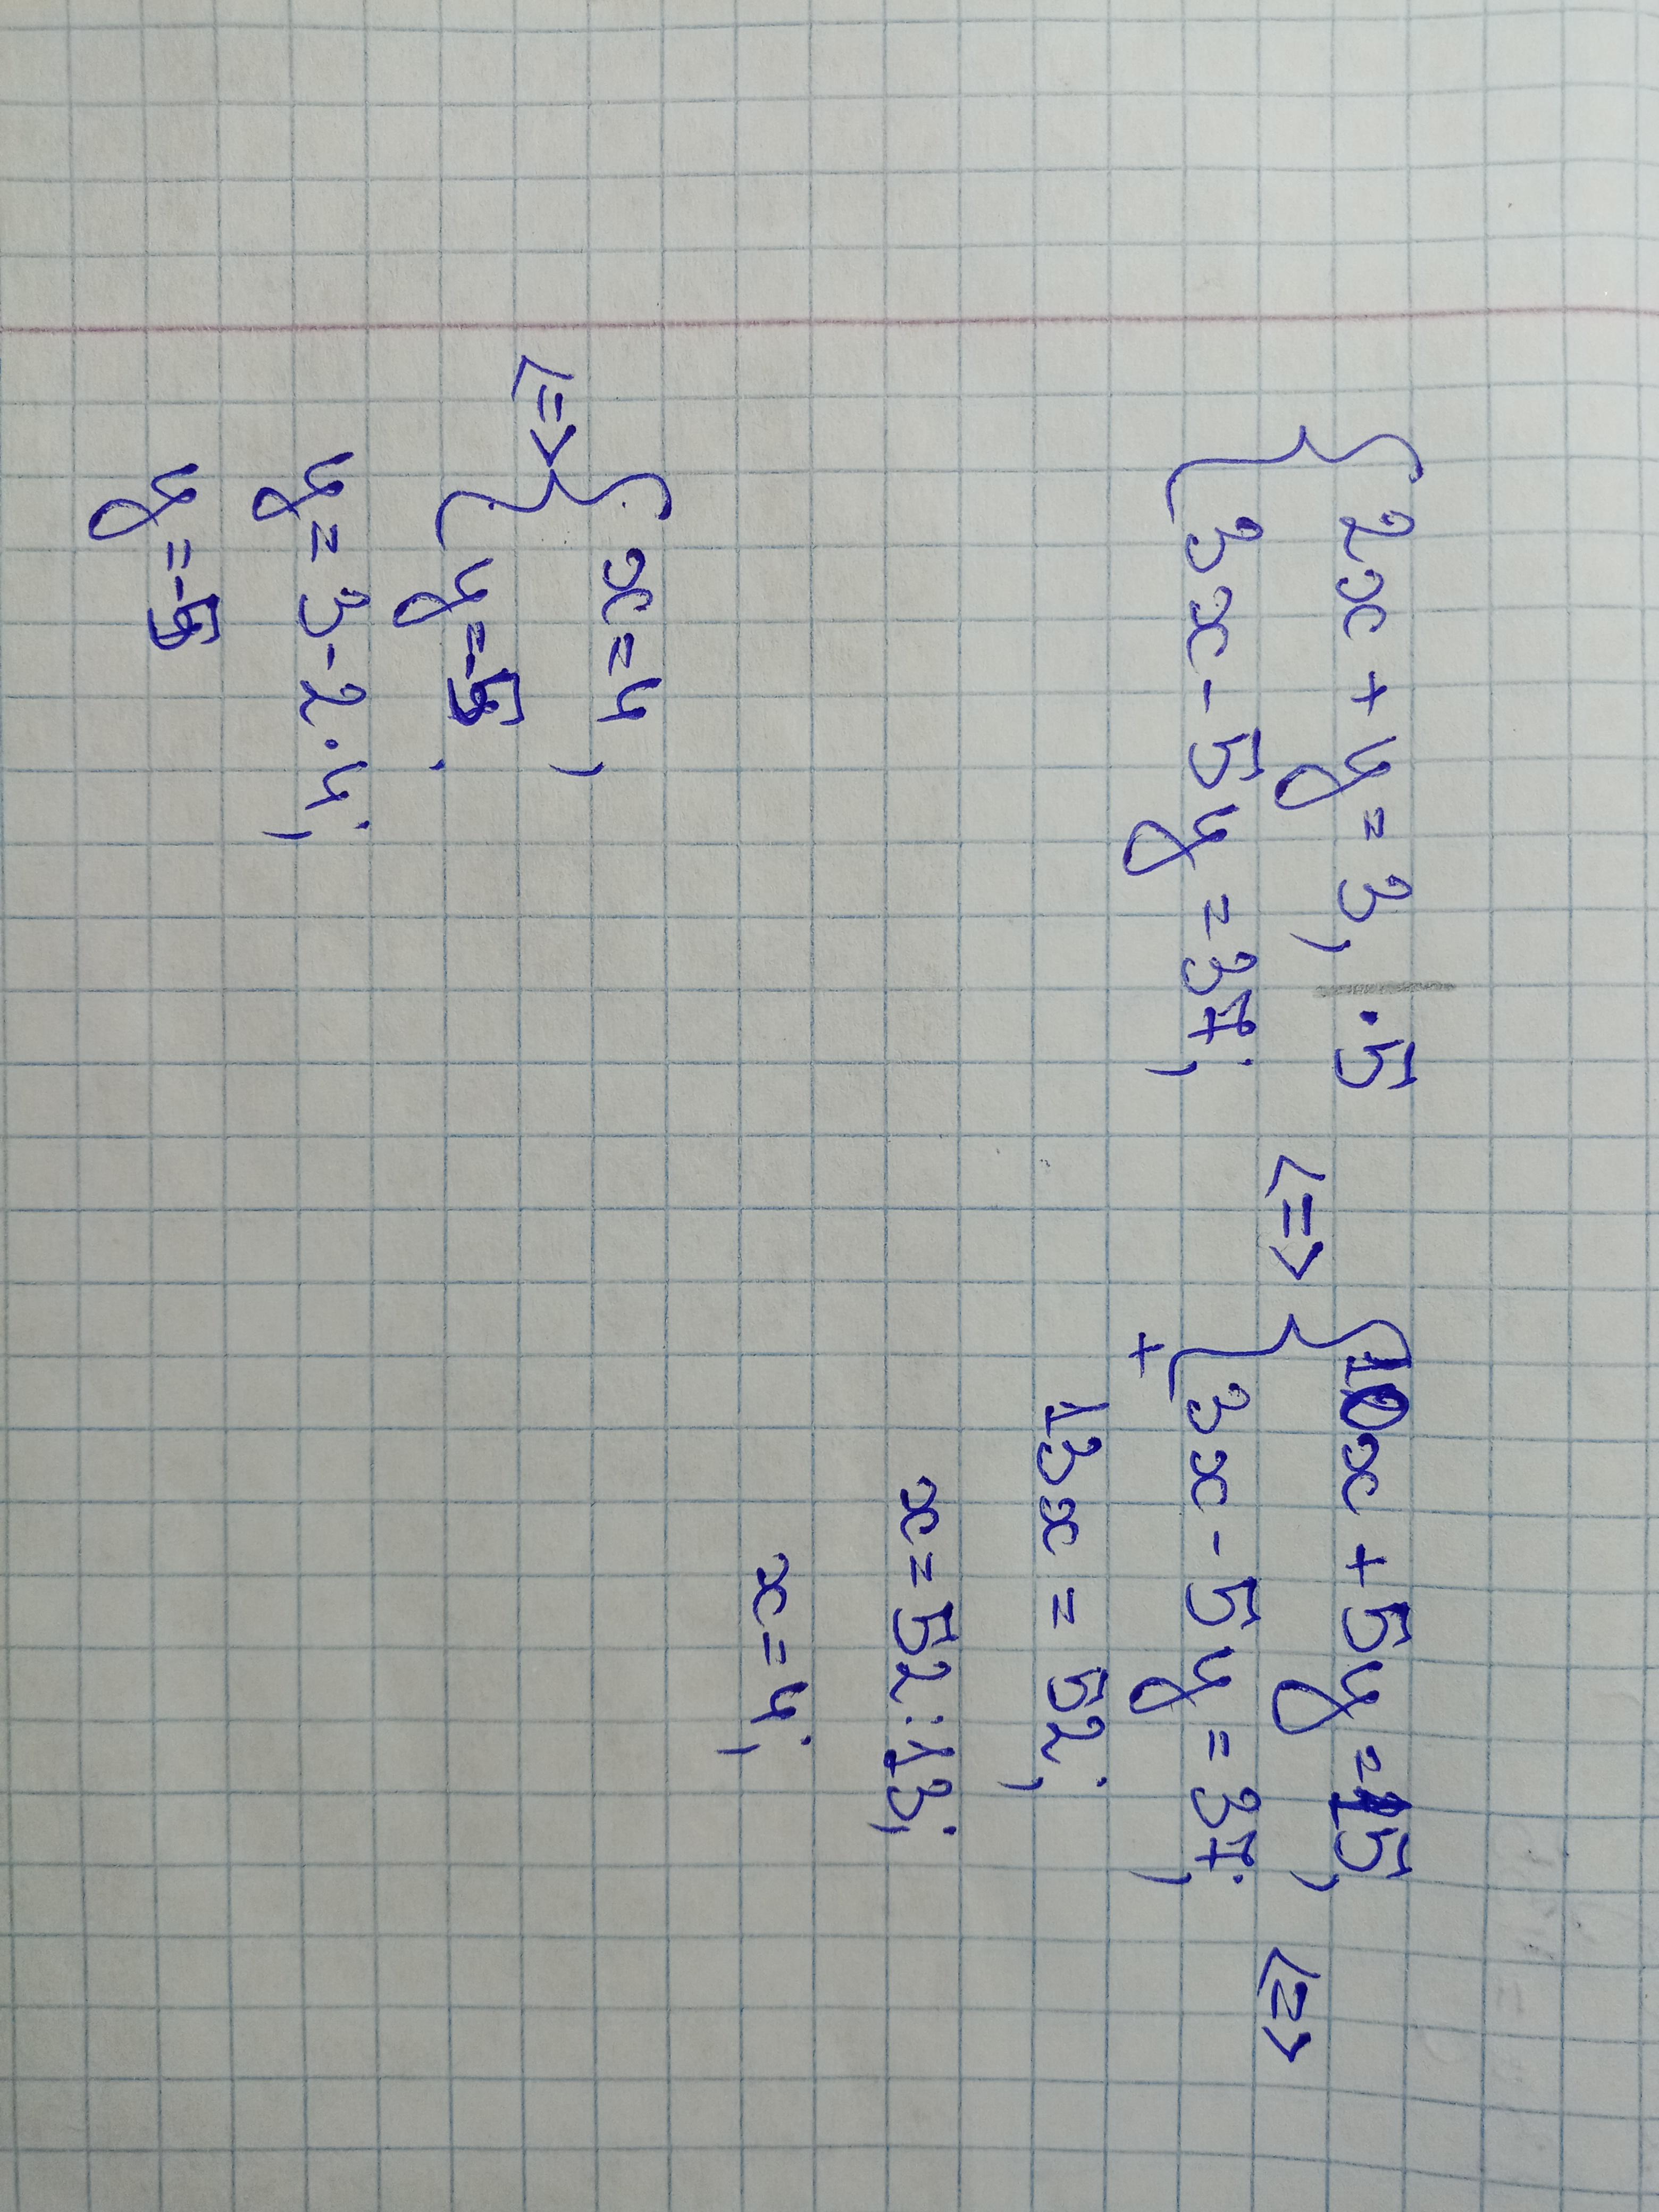 { 2x + y = 3, | ·5
{ 3x - 5y = 37;
<=>
{ 10x + 5y = 15,
+ { 3x - 5y = 37;
<=>
13x = 52;
x = 52:13;
x = 4;
<=> { x = 4,
{ y = -5.
y = 3 - 2·4;
y = -5